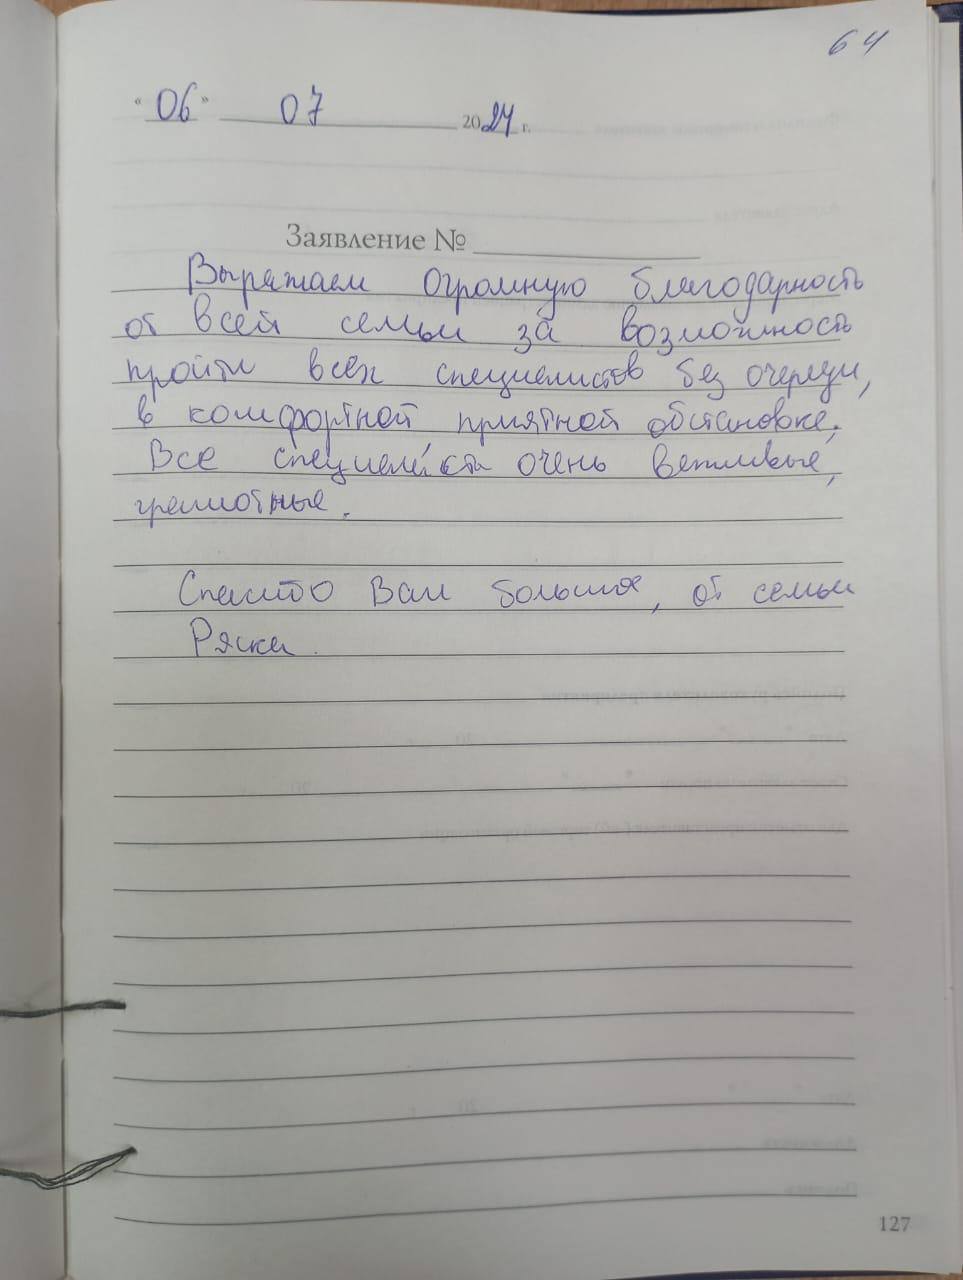 64
« 06 » 07 2024 г.
Заявление №
Выражаем огромную благодарность
от всей семьи за возможность
пройти всех специалистов без очереди,
в комфортной, приятной обстановке.
Все специалисты очень вежливые,
грамотные.
Спасибо Вам большое, от семьи
Ряска.
127